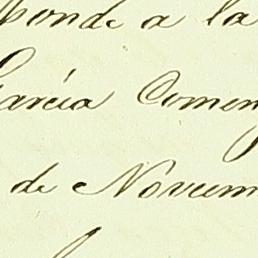 ponde a la
García Comen
de Noviem